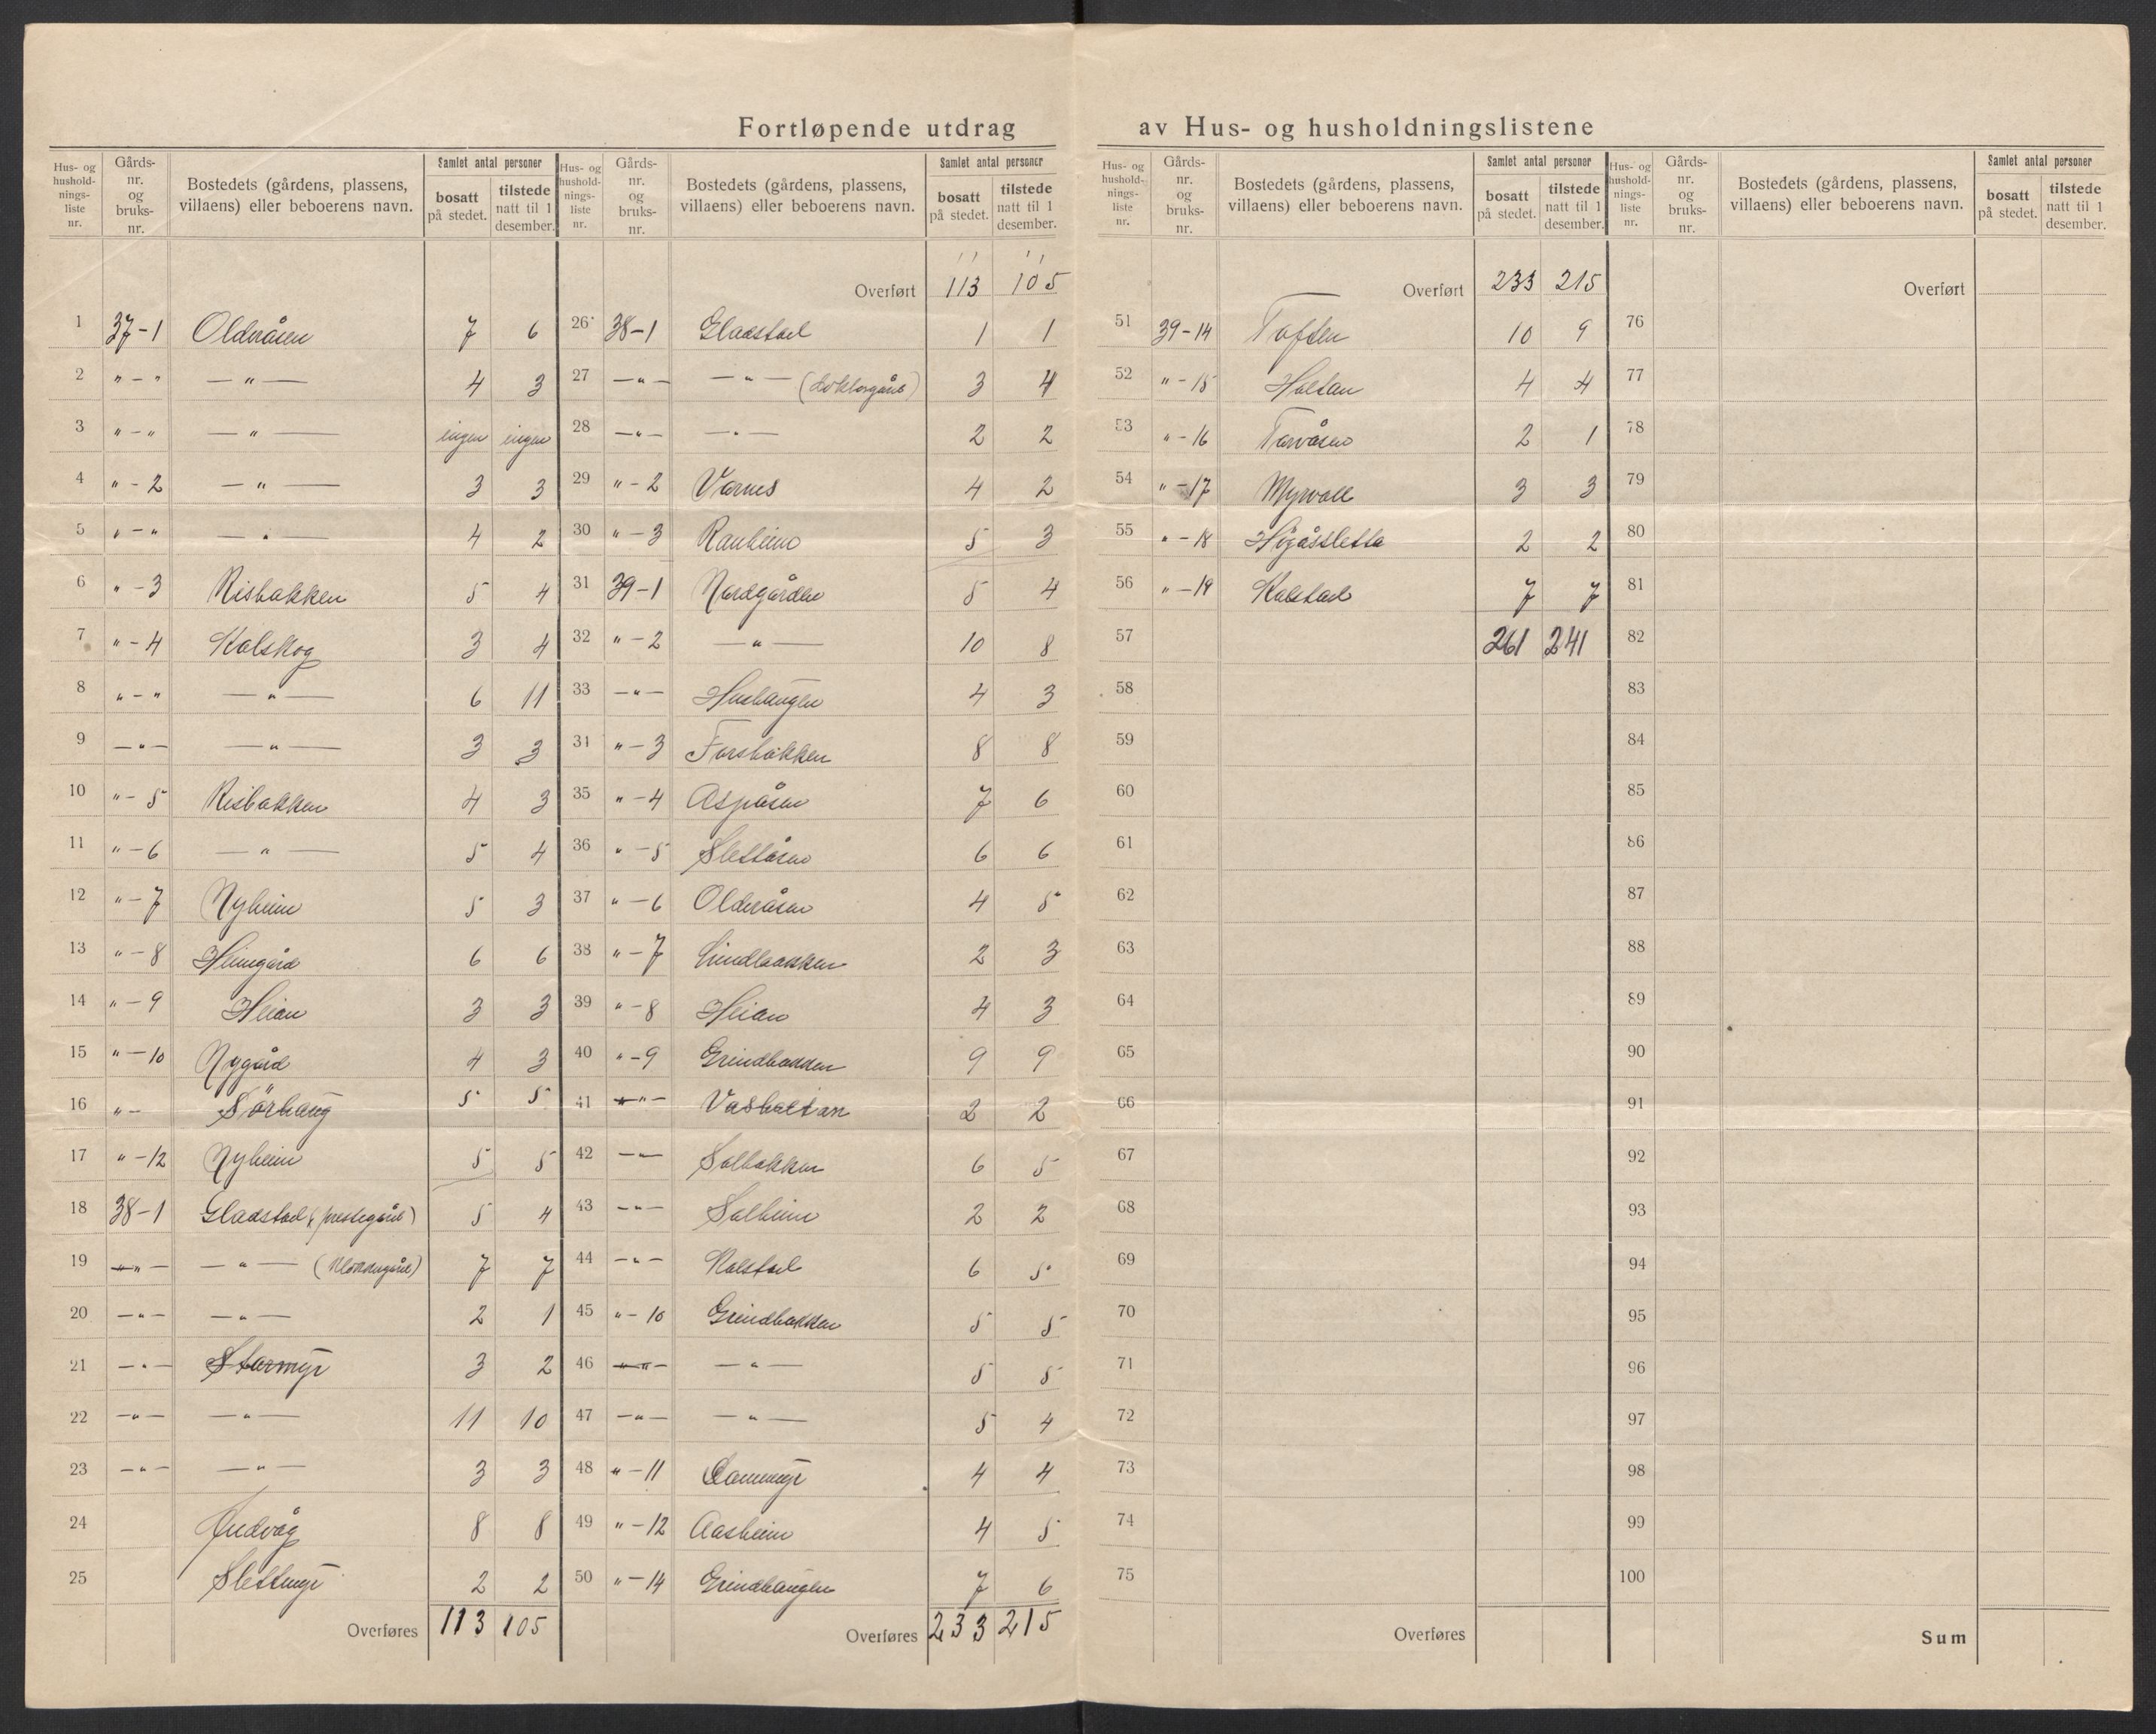 Fortløpende utdrag av Hus- og husholdningslistene
Hus- og hushold-nings-liste nr. | Gårds-nr. og bruks-nr. | Bostedets (gårdens, plassens, villaens) eller beboerens navn. | Samlet antal personer | bosatt på stedet. | tilstede natt til 1 desember.
1 37-1 Olderåsen 7 6
2 " - " — " — 4 3
3 " - " — " — ingen ingen
4 " - 2 — " — 3 3
5 " - " — " — 4 2
6 " - 3 Risbakken 5 4
7 " - 4 Kalskog 3 4
8 " - " — " — 6 11
9 — " — — " — 3 3
10 " - 5 Risbakken 4 3
11 " - 6 — " — 5 4
12 " - 7 Nyheim 5 3
13 " - 8 Heimgård 6 6
14 " - 9 Heian 3 3
15 " - 10 Nygård 4 3
16 " - Sörhaug 5 5
17 " - 12 Nyheim 5 5
18 38-1 Gladstad (prestegård) 5 4
19 — " — — " — (Klokkergård) 7 7
20 — " — — " — 2 1
21 — " — Starmyr 3 2
22 — " — — " — 11 10
23 — " — — " — 3 3
24 8 8
25 Slettmyr 2 2
Overføres 113 105
Hus- og hushold-nings-liste nr. | Gårds-nr. og bruks-nr. | Bostedets (gårdens, plassens, villaens) eller beboerens navn. | Samlet antal personer | bosatt på stedet. | tilstede natt til 1 desember.
Overført 113 105
26 38-1 Gladstad 1 1
27 — " — — " — (doktorgård) 3 4
28 — " — — " — 2 2
29 " - 2 Varnes 4 2
30 " - 3 Ranheim 5 3
31 39-1 Nordgården 5 4
32 " - 2 — " — 10 8
33 — " — Hushaugen 4 3
34 " - 3 Forsbakken 8 8
35 " - 4 Aspåsen 7 6
36 " - 5 Slettåsen 6 6
37 " - 6 Olderåsen 4 5
38 " - 7 2 3
39 " - 8 Heian 4 3
40 " - 9 Grindbakken 9 9
41 — " — Vasholtan 2 2
42 — " — Solbakken 6 5
43 — " — Solheim 2 2
44 — " — Kalstad 6 5
45 " - 10 Grindbakken 5 5
46 — " — — " — 5 5
47 — " — — " — 5 4
48 " - 11 4 4
49 " - 12 Aasheim 4 5
50 " - 14 Grindhaugen 7 6
Overføres 233 215
Hus- og hushold-nings-liste nr. | Gårds-nr. og bruks-nr. | Bostedets (gårdens, plassens, villaens) eller beboerens navn. | Samlet antal personer | bosatt på stedet. | tilstede natt til 1 desember.
Overført 233 215
51 39-14 Toften 10 9
52 " - 15 Holtan 4 4
53 " - 16 Torvåsen 2 1
54 " - 17 Myrvoll 3 3
55 " - 18 Högåssletta 2 2
56 " - 19 Kalstad 7 7
57 261 241
58
59
60
61
62
63
64
65
66
67
68
69
70
71
72
73
74
75
Overføres
Hus- og hushold-nings-liste nr. | Gårds-nr. og bruks-nr. | Bostedets (gårdens, plassens, villaens) eller beboerens navn. | Samlet antal personer | bosatt på stedet. | tilstede natt til 1 desember.
Overført
76
77
78
79
80
81
82
83
84
85
86
87
88
89
90
91
92
93
94
95
96
97
98
99
100
Sum